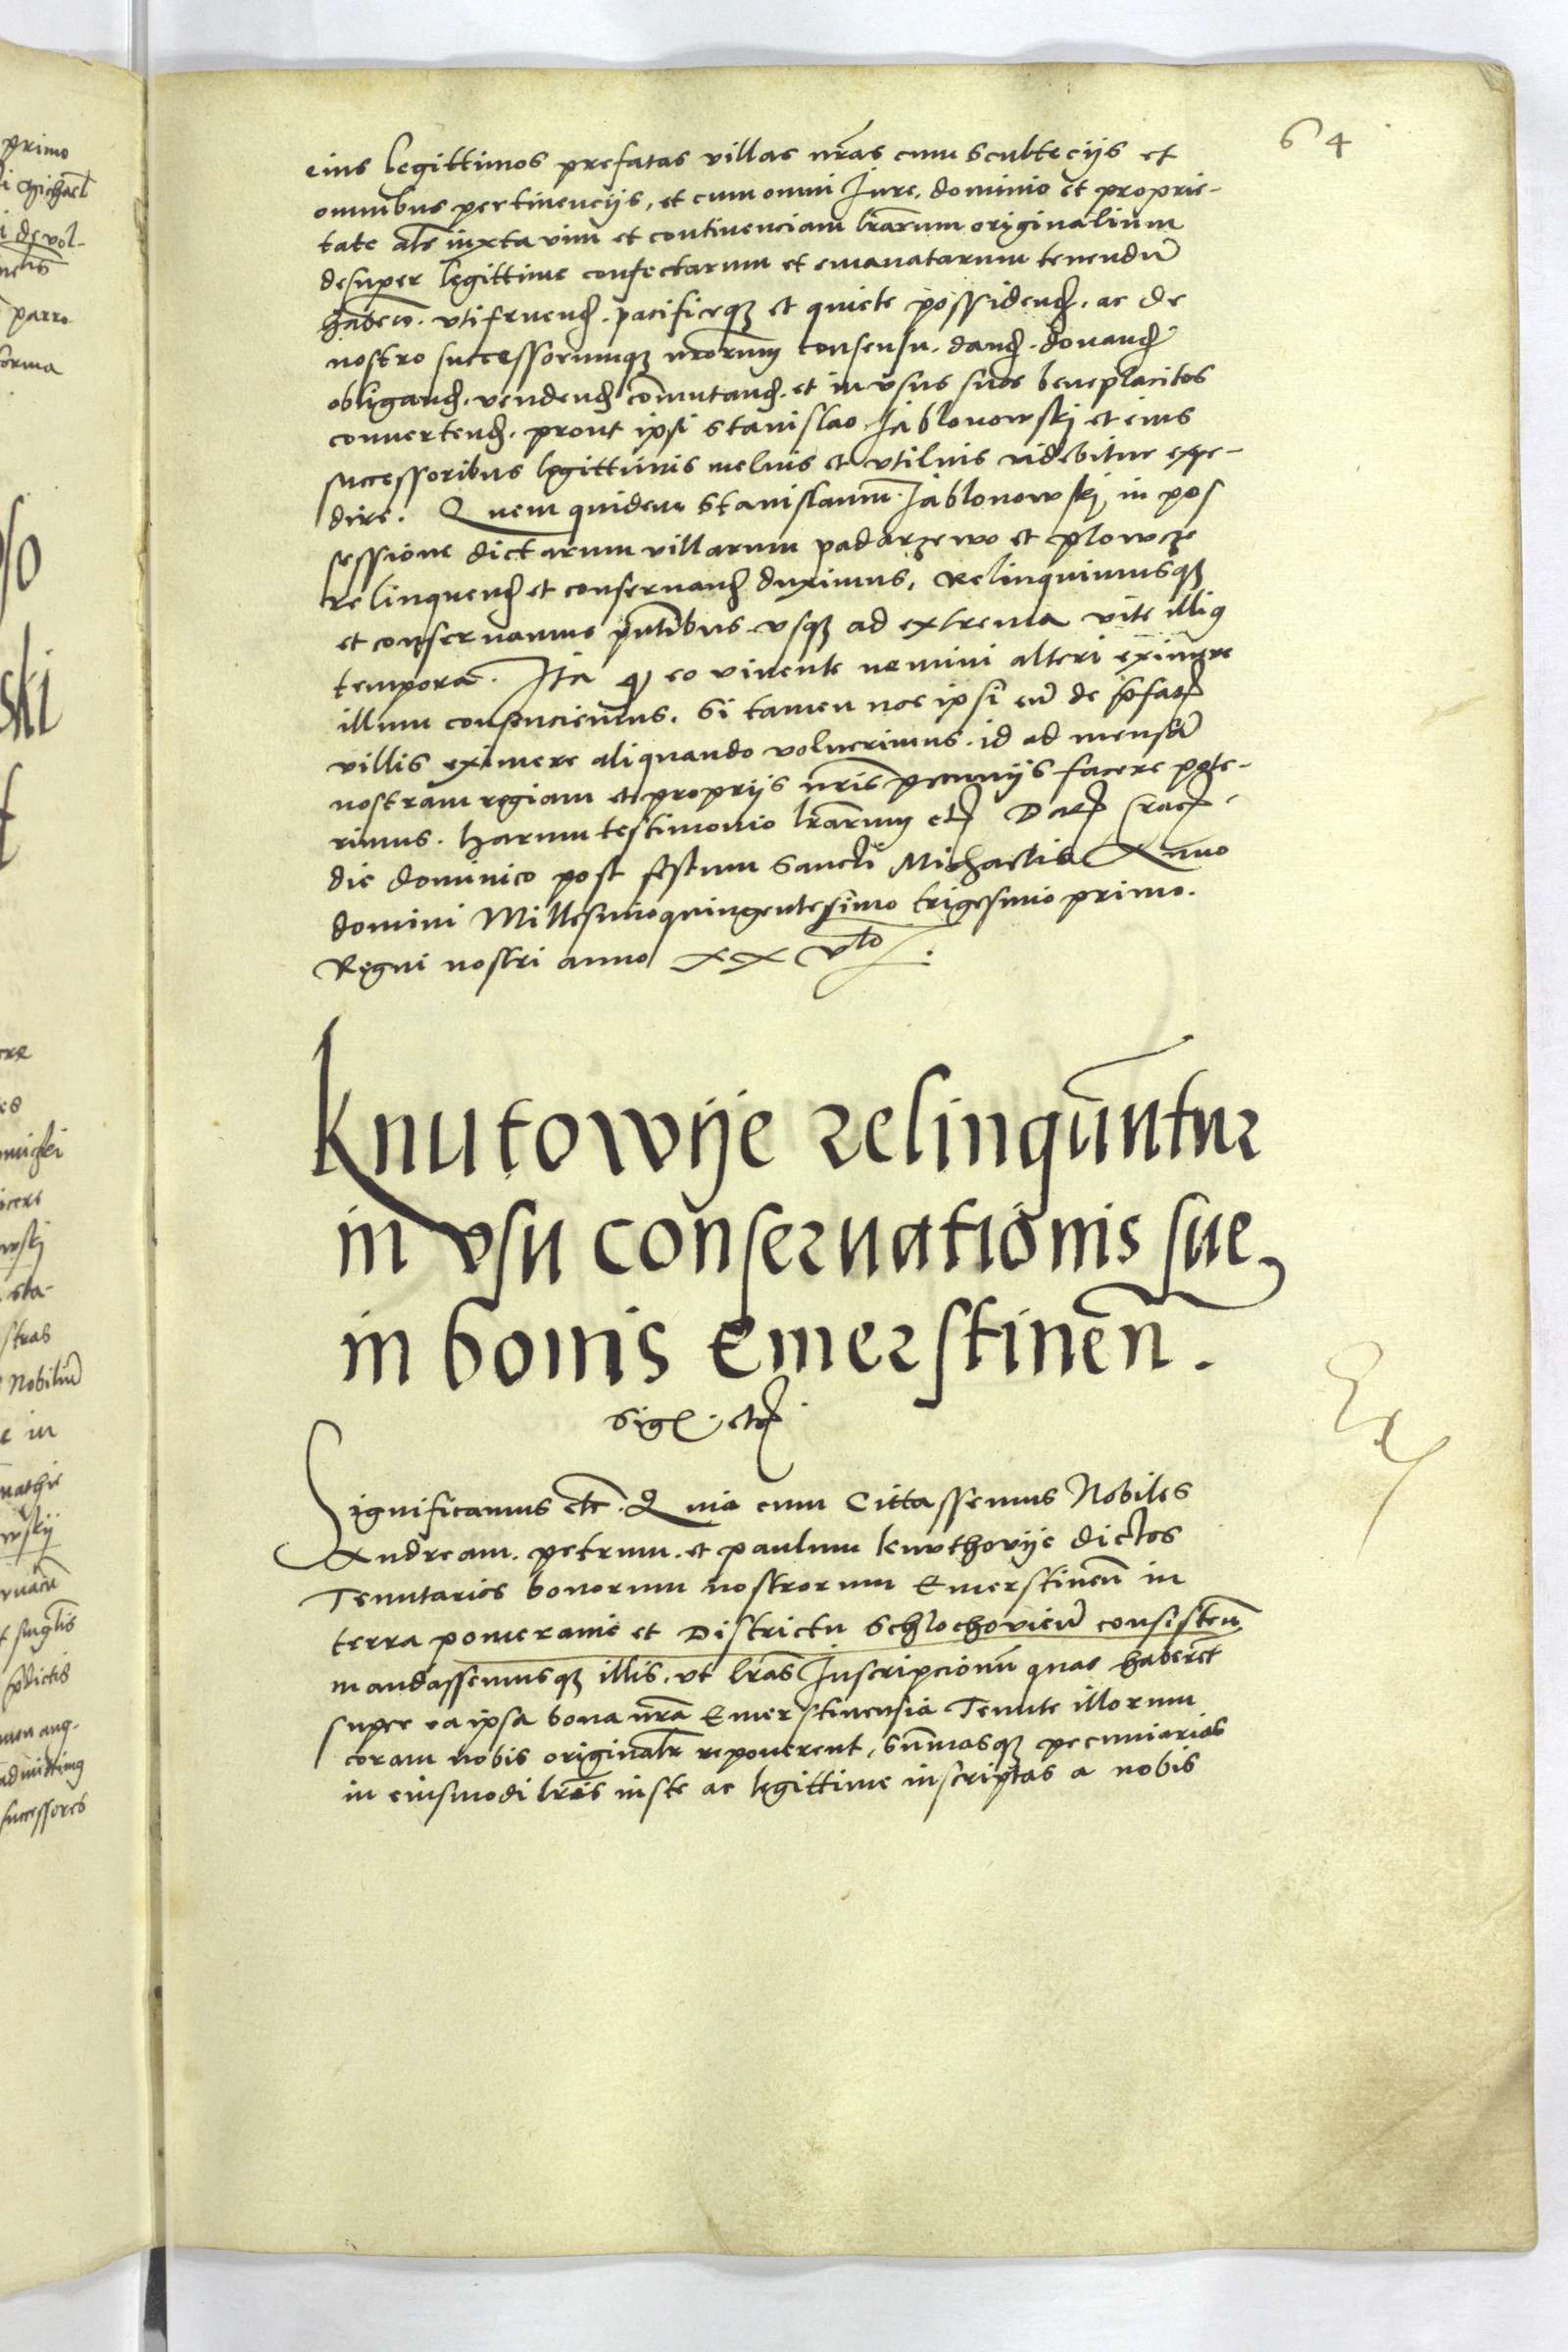 64
eius legittimos prefatas villas nr̄as cum scultecijs et
omnibus pertinencijs, et cum omni Jure, dominio et proprie-
tate al̄s iuxta vim et continenciam lr̄arum originalium
desuper legittime confectarum et emanatarum tenendū
habeñ. vtifruend̨. pacificeqz et quiete possidend̨. ac de
nostro successorumqz nr̄orum consensu. dand̨. donand̨
obligand̨. vendend̨ com̄utand̨. et in vsus suos beneplacitos
conuertend̨. prout ipsi Stanislao Jablonowskj et eius
successoribus legittimis melius et vtilius videbitur expe-
dire. Quem quidem Stanislaum Jablonowskj in pos
sessione dictarum villarum padarzewo et plowcze
relinquend̨ et conseruand̨ duximus, Relinquimusqz
et conseruamus pn̄tibus vsqz ad extrema vite illiq
tempora. Ita qd eo viuente nemini alteri eximere
illum consenciemus. Si tamen nos ipsi eū de p̄fatꝭ
villis eximere aliquando voluerimus. id ad mensā
nostram regiam et proprijs nr̄is pecunijs facere pote-
rimus. Harum testimonio lr̄arum etꝭ Datꝭ Cracꝭ
die dominico post festum Sancti Michaelis Anno
domini Millesimoquingentesimo trigesimo primo.
Regni nostri anno xx vto.
Knutowije relinquūntur
in vsu conseruationis sue
in bonis Emerstinen̄.
Sigꝭ. etꝭ.
Significamus etc̄. Quia cum Cittassemus Nobiles
Andream. petrum. et paulum knvthovije dictos
Tenutarios bonorum nostrorum Emerstinen̄ in
terra pomeranie et Districtu Schlochoviен̄ consisten̄
mandassemusqz illis. vt lr̄as Inscripcionum quas haberēt
super ea ipsa bona nr̄a Emerstinensia Tenute illorum
coram nobis originalr̄ reponerent, Sum̄asqz pecuniarias
in eiusmodi lr̄is iuste ac legittime inscriptas a nobis